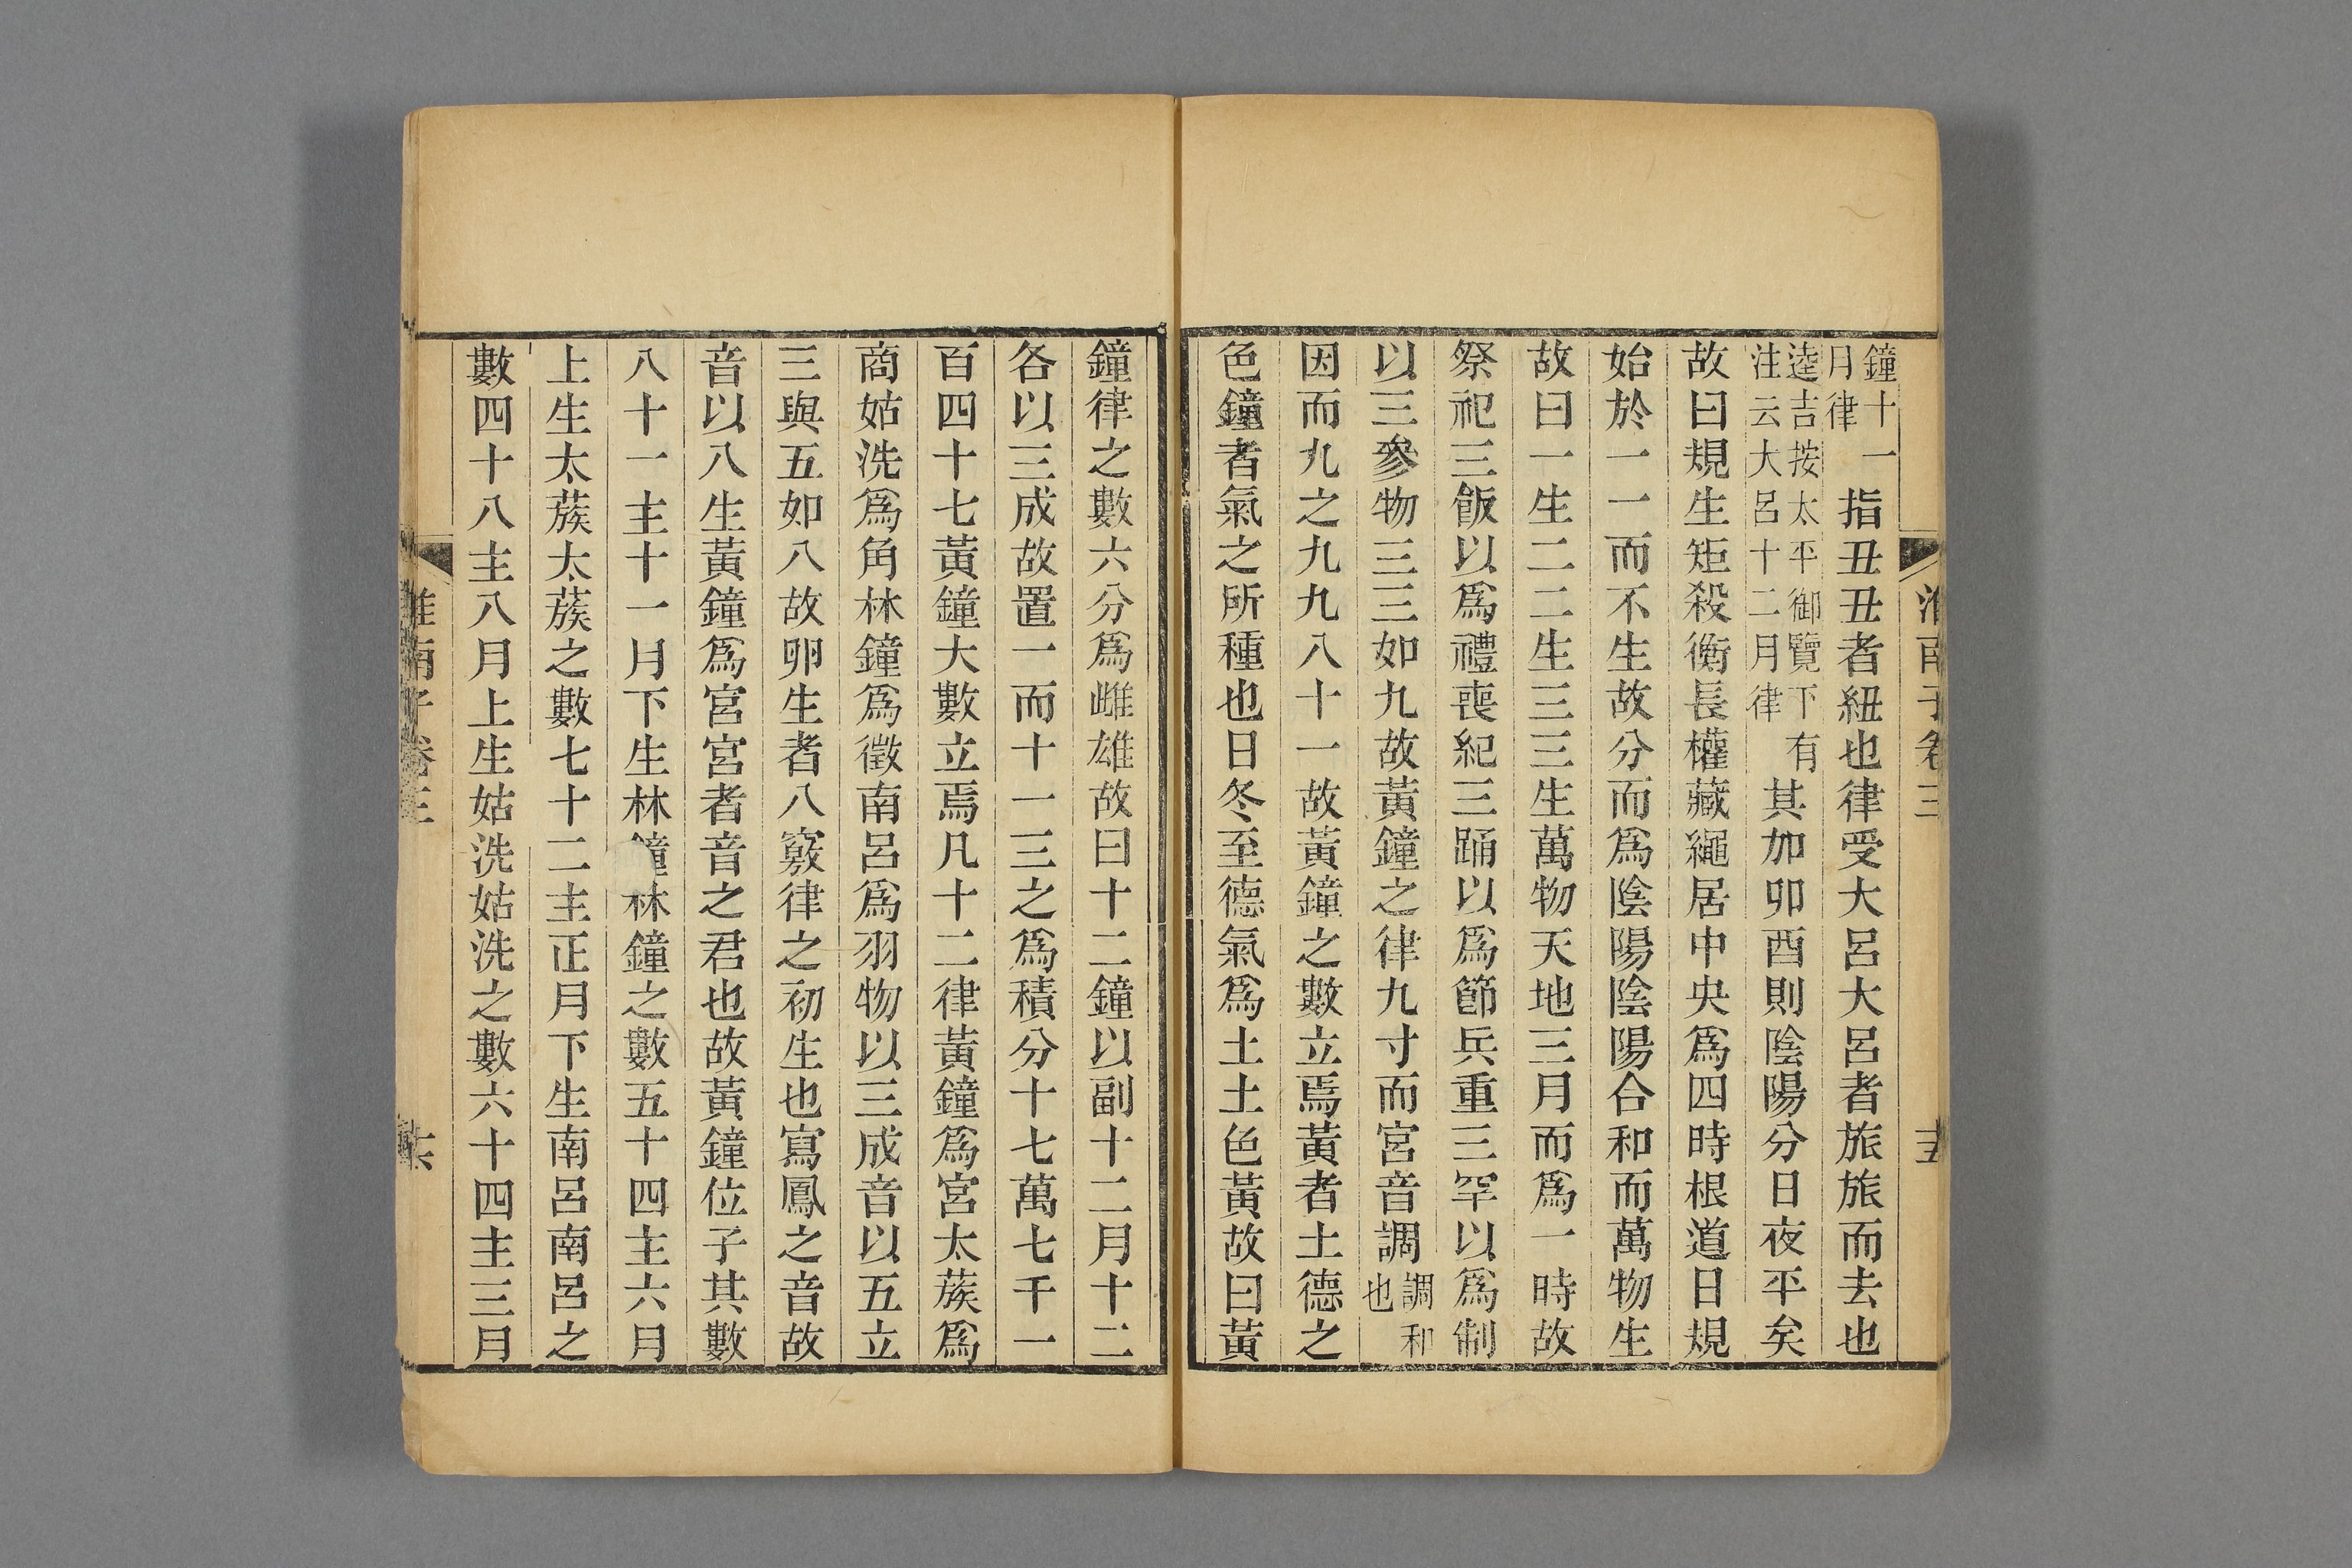 淮南子卷三 十五
鐘十一月律指丑丑者紐也律受大呂大呂者旅旅而去也
逵吉按太平御覽下有注云大呂十二月律其加卯酉則陰陽分日夜平矣
故曰規生矩殺衡長權藏繩居中央爲四時根道曰規
始於一一而不生故分而爲陰陽陰陽合和而萬物生
故曰一生二二生三三生萬物天地三月而爲一時故
祭祀三飯以爲禮喪紀三踊以爲節兵重三罕以爲制
以三參物三三如九故黃鐘之律九寸而宮音調調和也
因而九之九九八十一故黃鐘之數立焉黃者土德之
色鐘者氣之所種也日冬至德氣爲土土色黃故曰黃
鐘律之數六分爲雌雄故曰十二鐘以副十二月十二
各以三成故置一而十一三之爲積分十七萬七千一
百四十七黃鐘大數立焉凡十二律黃鐘爲宮太蔟爲
商姑洗爲角林鐘爲徵南呂爲羽物以三成音以五立
三與五如八故卵生者八竅律之初生也寫鳳之音故
音以八生黃鐘爲宮宮者音之君也故黃鐘位子其數
八十一主十一月下生林鐘林鐘之數五十四主六月
上生太蔟太蔟之數七十二主正月下生南呂南呂之
數四十八主八月上生姑洗姑洗之數六十四主三月
淮南子卷三 十六